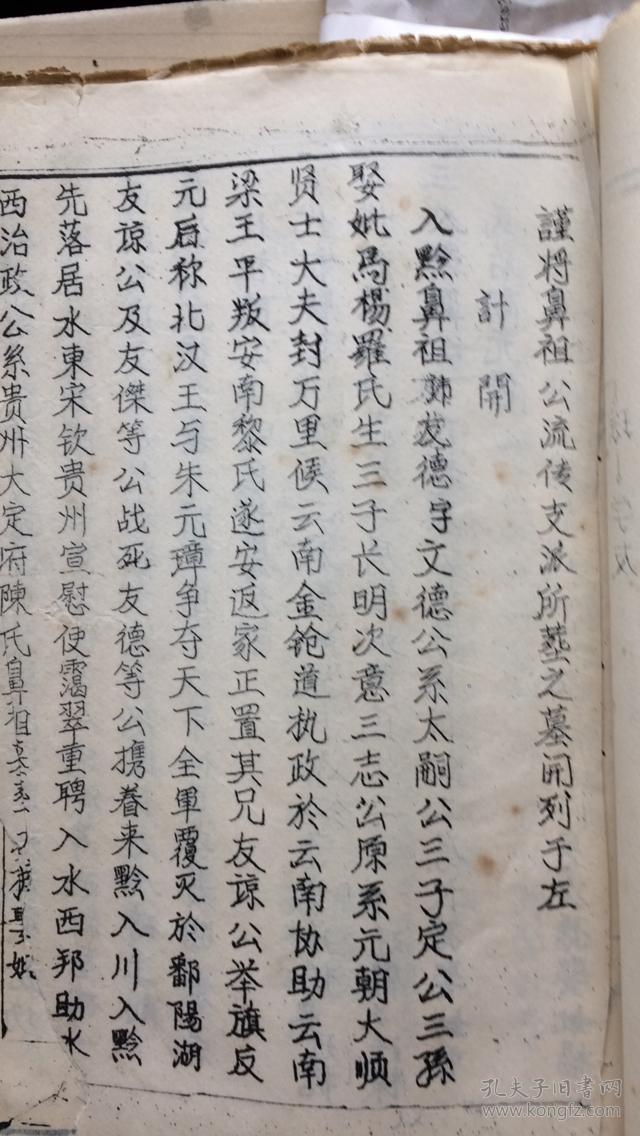 謹将鼻祖公流传支派所塟之墓開列于左
計開
入黔鼻祖諱友德字文德公系太嗣公三子定公三孫
娶妣馬楊羅氏生三子长明次意三志公原系元朝大顺
贤士大夫封万里候云南金鎗道执政於云南协助云南
梁王平叛安南黎氏遂安返家正置其兄友谅公举旗反
元后称北汉王与朱元璋争夺天下全軍覆灭於鄱陽湖
友谅公及友傑等公战死友德等公携眷来黔入川入黔
先落居水東宋钦贵州宣慰使靄翠重聘入水西邦助水
西治政公系贵州大定府陳氏鼻祖墓
孔夫子旧书网
www.kongfz.com